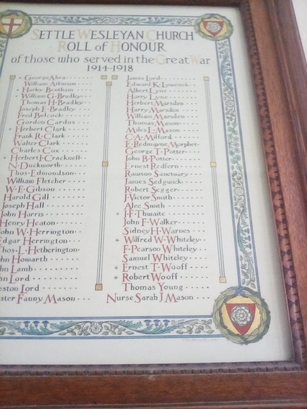 SETTLE WESLEYAN CHURCH
ROLL of HONOUR
of those who served in the Great War
1914-1918
George Abra
William Atkinson
Harley Bentham
William G. Bradley
Thomas H. Bradley
Joseph E. Bradley
Fred Balcock
Gordon Cardus
Herbert Clark
Frank R. Clark
Walter Clark
Charles Cox
Herbert Cracknell
N. Duckworth
Thos. Edmondson
William Fletcher
W. E. Gibson
Harold Gill
Joseph Hall
John Harris
Henry Heaton
John W. Herrington
Edgar Herrington
Thos. L. Hetherington
John Howarth
John Lamb
John Lord
Preston Lord
Sister Fanny Mason
James Lord
Edward K. Lovelock
Albert Lyne
Harry Lyne
Herbert Marsden
Harry Marsden
William Marsden
Thomas Mason
Miles L. Mason
C. A. Milford
E. Redmayne
George T. Potter
John B. Potter
Ernest Redfern
James Sedgwick
Robert Seeger
Victor Smith
Alec Smith
H. Thwaite
John F. Walker
Sidney H. Warnes
Wilfred W. Whiteley
F. Pearson Whiteley
Samuel Whiteley
Ernest T. Wooff
Robert R. Wooff
Thomas Young
Nurse Sarah J. Mason